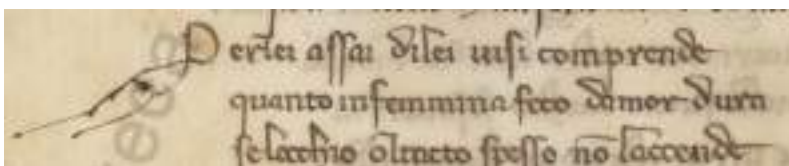 Perlei assai dilei uisi comprende
quanto infemmina foco damor dura
se locchio oltacto spesso nō laccende